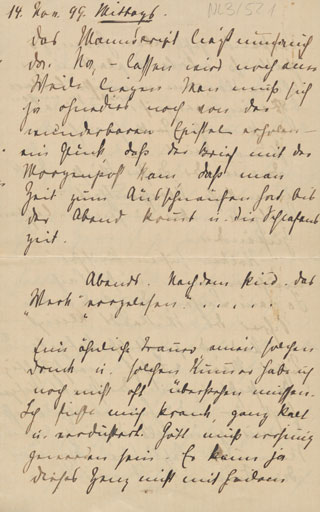 14. Nov. 99. Mittags.
NL 3/521
Das Manuscript liegt nun auch
da. Na, – lassen wird noch eine
Weile liegen. Man muß sich
ja ohnedies noch von der
wunderbaren Epistel erholen –
ein Glück, daß der Brief mit der
Morgenpost kam, daß man
Zeit zum Aufschnaufen hat, bis
der Abend kommt u. die Schlafens
zeit.
Abends. Nachdem Kind das
"Werk" vorgelesen. . . . . .
Eine ähnliche Trauer, einen solchen
Druck u. solchen Kummer hab ich
noch nicht oft überstehen müssen.
Ich fühle mich krank, ganz kalt
u. verdüstert. Gott muß
gewesen sein. Er kann ja
dieses Zeug nicht mit